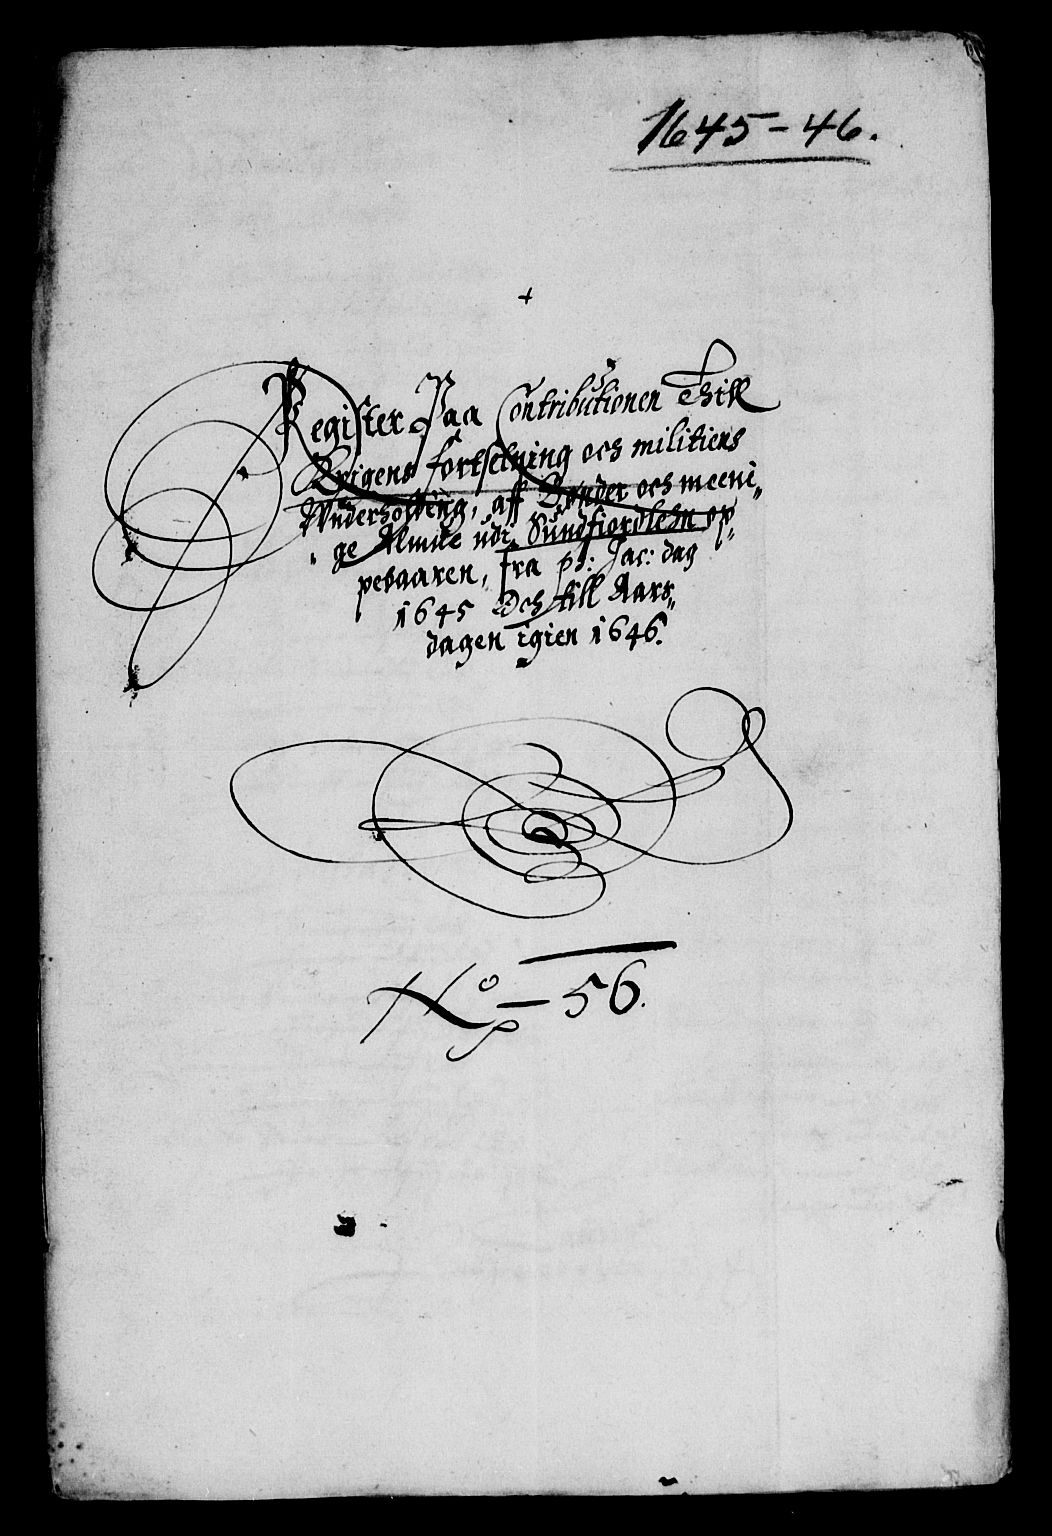 1645-46.
Register Paa Contributionen Thill
Krigens fortselning och militiens
Wnderholding, aff Bønder och meeni„
ge Almue udi Sundfiordlehn op„
pebaaren, fra pl: Jac: dag
1645 Och till Aars„
dagen igien 1646.
No – 56.